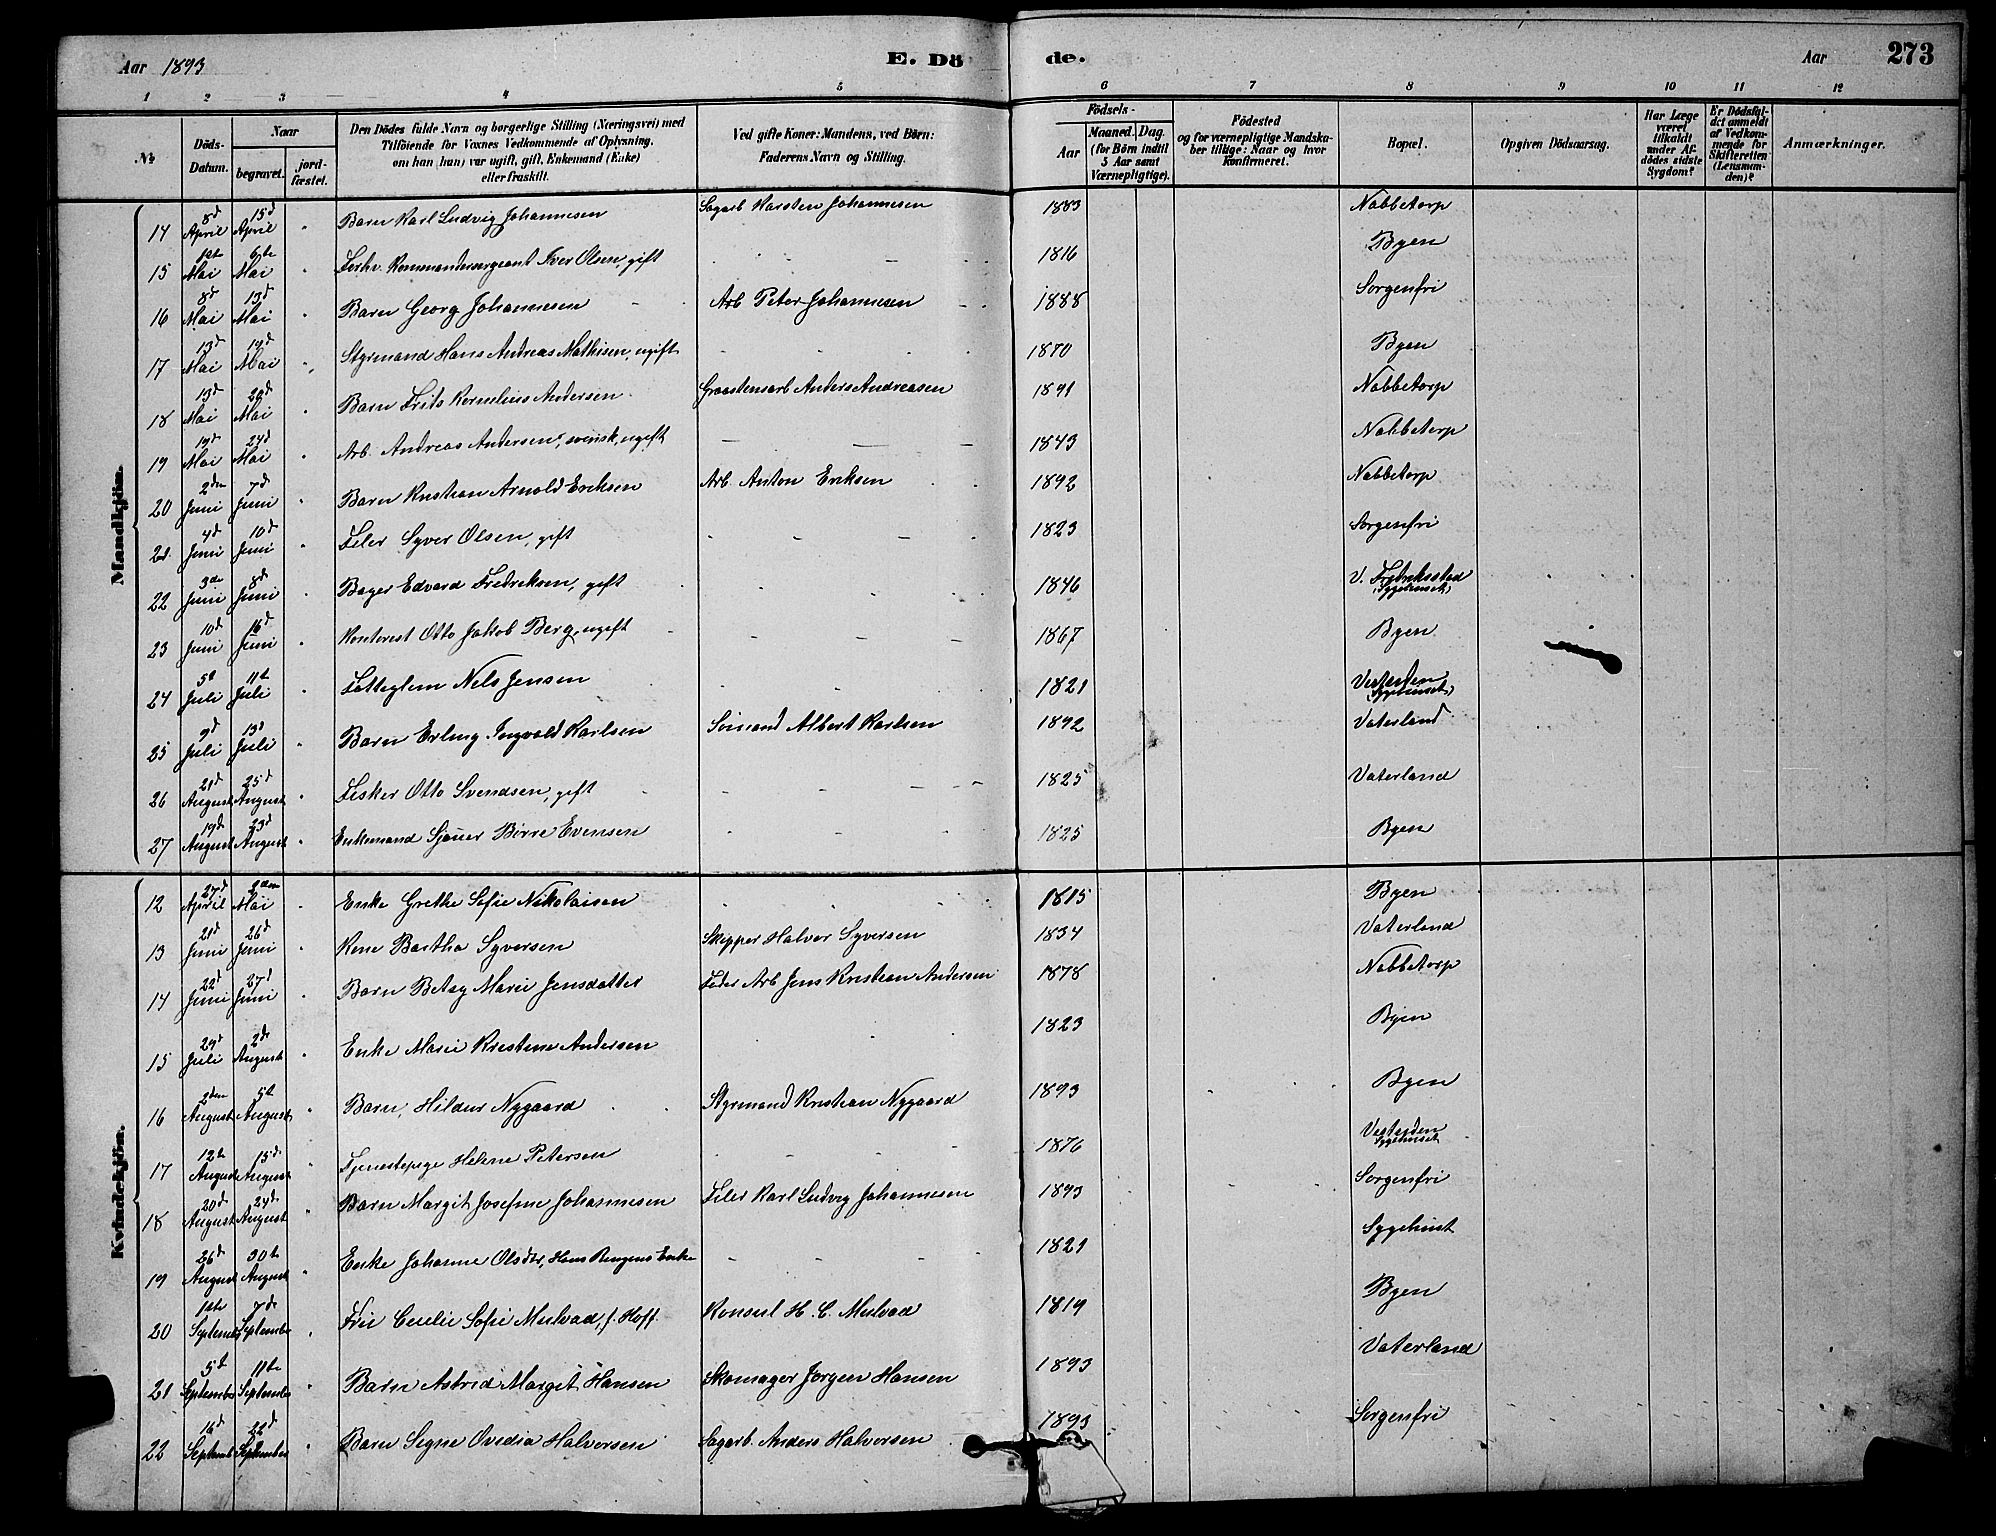 Aar 1893 E. Dö de. Aar 273
1 2 3 4 5 6 7 8 9 10 11 12
No. Döds-Datum. Naar begravet. jordfæstet. Den Dödes fulde Navn og borgerlige Stilling (Næringsvei) med Tilföiende for Voxnes Vedkommende af Oplysning, om han (hun) var ugift, gift, Enkemand (Enke) eller fraskilt. Ved gifte Koner: Mandens, ved Börn: Faderens Navn og Stilling. Födsels- Aar Maaned. Dag. (for Börn indtil 5 Aar samt Værnepligtige). Födested og for værnepligtige Mandskaber tillige: Naar og hvor konfirmeret. Bopæl. Opgiven Dödsaarsag. Har Læge været tilkaldt under Afdödes sidste Sygdom? Er Dödsfaldet anmeldt af Vedkommende for Skifteretten (Lensmanden)? Anmærkninger.
Mandkjön.
14 8d April 15d April " Barn Karl Ludvig Johannesen Sagarb Karsten Johannesen 1883 Nabbetorp
15 1ste Mai 6te Mai " Forhv. Kommandersergeant Iver Olsen, gift 1816 Byen
16 8d Mai 13d Mai " Barn Georg Johannesen Arb Peter Johannesen 1888 Sorgenfri
17 13d Mai 19d Mai " Styrmand Hans Andreas Mathisen, ugift 1870 Byen
18 13d Mai 20d Mai " Barn Frits Kornelius Andersen Graastensarb Anders Andreasen 1891 Nabbetorp
19 19d Mai 24d Mai " Arb. Andreas Andersen, svensk, ugift 1843 Nabbetorp
20 2den Juni 7d Juni " Barn Kristian Arnold Eriksen Arb. Anton Eriksen 1892 Nabbetorp
21 4d Juni 10d Juni " Filer Syver Olsen, gift 1823 Sorgenfri
22 3de Juni 8d Juni " Bager Edvard Fredriksen, gift 1846 V. Fredriksstad (Sygehuset)
23 10d Juni 16d Juni Kontorist Otto Jakob Berg, ugift 1867 Byen
24 5te Juli 11te Juli " Fatteglem Nels Jensen 1821 Vestsiden (Sygehuset)
25 9d Juli 13d Juli " Barn Erling Ingvald Karlsen Sömand Albert Karlsen 1892 Vaterland
26 21d August 25d August " Fisker Otto Svendsen, gift 1825 Vaterland
27 19d August 23d August " Enkemand Sjauer Börre Evensen 1825 Byen
Kvindekjön.
12 27d April 2den Mai " Enke Grethe Sofie Nikolaisen 1815 Byen
13 21d Juni 26d Juni " Kone Bertha Syversen Skipper Halvor Syversen 1834 Vaterland
14 22d Juni 27d Juni " Barn Betsy Marie Jensdatter Fader Arb Jens Kristian Andersen 1878 Nabbetorp
15 29d Juli 2de August " Enke Marie Kristine Andersen 1823 Byen
16 2den August 5te August " Barn, Hildur Nygaard Styrmand Kristian Nygaard 1893 Byen
17 12te August 15d August " Tjenestepige Helene Petersen 1876 Vestsiden Sygehuset
18 20d August 24d August " Barn Margit Josefine Johannesen Filer Karl Ludvig Johannesen 1893 Sorgenfri
19 26d August 30te August " Enke Johanne Olsdtr, Hans Enke 1821 Sygehuset
20 1ste September 7de September " Frue Cecilie Sofie Mulvad, f. Hoff Konsul H. C. Mulvad 1819 Byen
21 5te September 11te September " Barn Astrid Margit Hansen Skomager Jörgen Hansen 1893 Vaterland
22 16d September 22d September " Barn Signe Ovedia Halvorsen Sagarb. Anders Halvorsen 1893 Sorgenfri